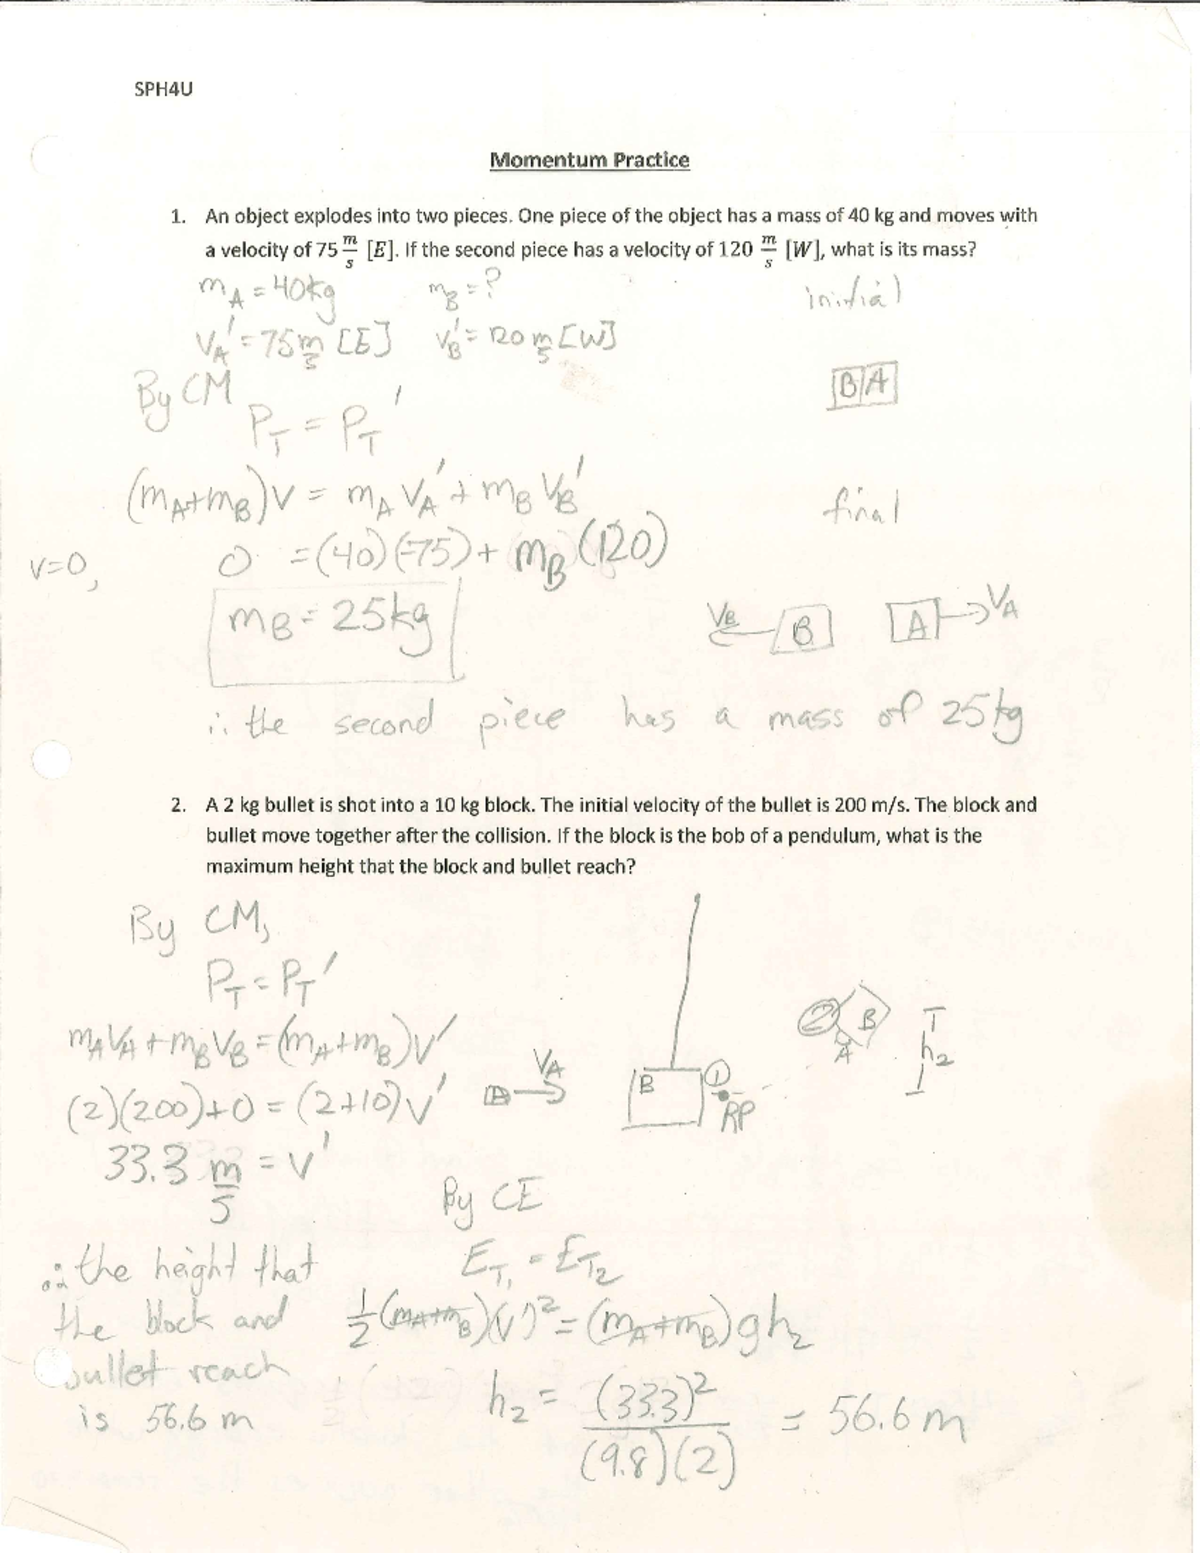 SPH4U
Momentum Practice
1. An object explodes into two pieces. One piece of the object has a mass of 40 kg and moves with
a velocity of 75 m/s [E]. If the second piece has a velocity of 120 m/s [W], what is its mass?
m_A = 40kg m_B = ? initial
V_A' = 75 m/s [E] V_B' = 120 m/s [W]
By CM B A
P_T = P_T'
(m_A+m_B)V = m_A V_A' + m_B V_B' final
V=0, 0 = (40)(-75) + m_B(120)
m_B = 25kg V_B B A V_A
∴ the second piece has a mass of 25kg
2. A 2 kg bullet is shot into a 10 kg block. The initial velocity of the bullet is 200 m/s. The block and
bullet move together after the collision. If the block is the bob of a pendulum, what is the
maximum height that the block and bullet reach?
By CM,
P_T = P_T'
m_A V_A + m_B V_B = (m_A+m_B)V' ② B A h_2
(2)(200)+0 = (2+10)V' A V_A B ① RP
33.3 m/s = V'
By CE
∴ the height that E_T1 = E_T2
the block and 1/2(m_A+m_B)(V')² = (m_A+m_B)gh_2
bullet reach h_2 = (33.3)²/(9.8)(2) = 56.6 m
is 56.6 m